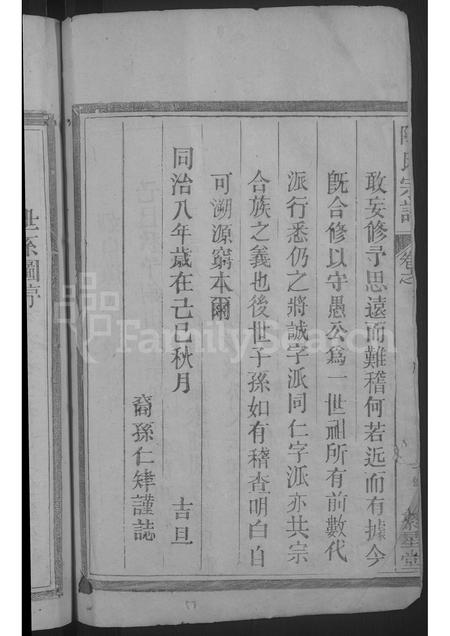 敢妄修予思遠而難稽何若近而有據今
既合修以守愚公爲一世祖所有前數代
派行悉仍之將誠字派同仁字派亦共宗
合族之義也後世子孫如有稽查明白自
可溯源窮本爾
同治八年歲在己巳秋月　吉旦
裔孫仁肂謹誌
陳氏宗譜
卷之
聚星堂
世系圖序
FamilySearch